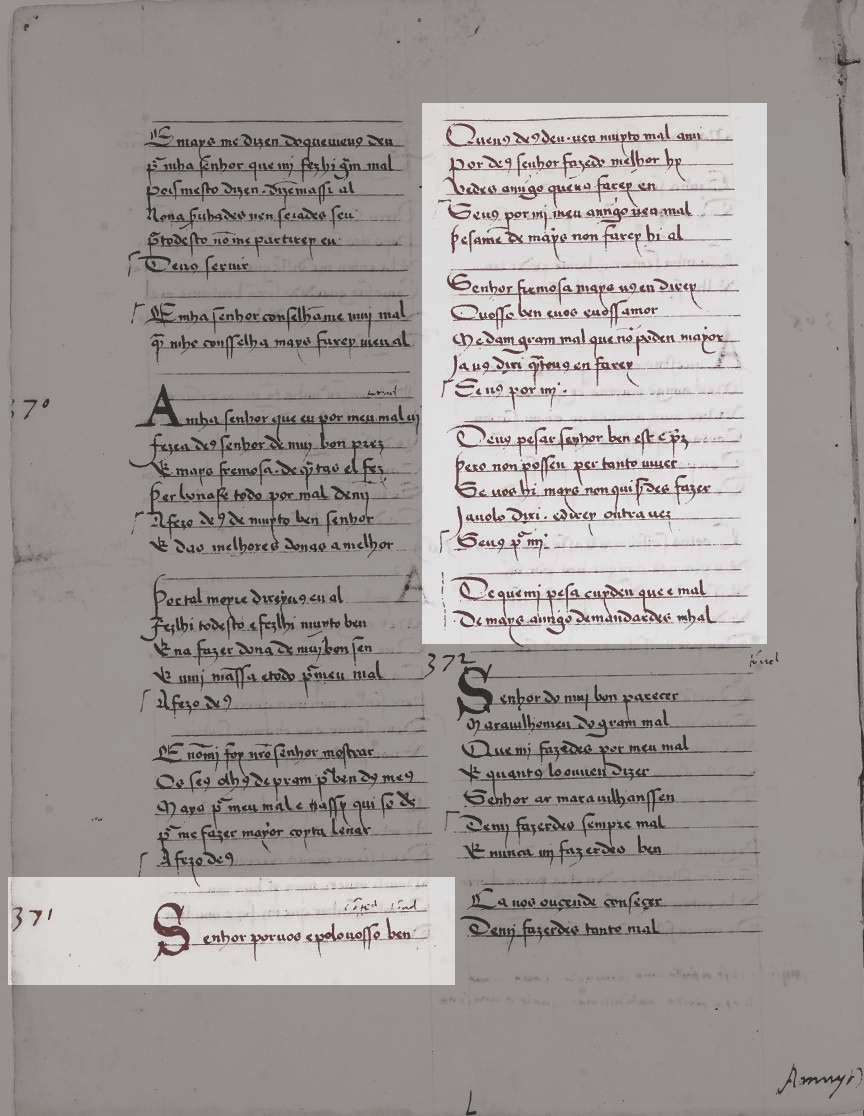 E mays me dizen do que me uẽo deu
pʳ mha senhor que mi fezhi gm̃ mal
pois mesto dizen. dizemassi al
Nona ui hades nen seiades seu
pʳ todesto nõ me partirey eu
Deuos seruir
E mha senhor conselhame muj mal
q̃ mho consselha mays farey meu al
370
A mha senhor que eu por meu mal ui
fezea deꝯ senhor de muy bon prez
E mays fremosa. de q̃ tas el fez
Per bona fe todo por mal de mj
A fezo deꝯ de muyto ben senhor
E das melhores donas a melhor
Por tal moyre direyuꝯ eu al
Fezlhi todesto e fezlhi muyto ben
E na fazer dona de muj bon sen
E mui massa e todo pʳ meu mal
A fezo deꝯ
E nom̃j foy nr̃o senhor mostrar
Os seꝯ olhꝯ de pram pʳ ben dꝯ meꝯ
Mays pʳ meu mal e
pʳ me fazer mayor coyta leuar
A fezo deꝯ
371
Senhor por uos e polo uosso ben
Que uꝯ deꝯ deu. uen muyto mal a mi
Por deꝯ senhor fazedo melhor hy
Vedes amigo que uꝯ farey en
Se uꝯ por mi meu amigo uen mal
Pesame de mays non farey hi al
Senhor fremosa mays uꝯ en direy
Vosso ben e uos e uossamor
Me dam gram mal que nõ poden mayor
Ja uꝯ dixi q̃ to uꝯ en farey
Se uꝯ por mi.
De uꝯ pesar senhor ben est e pʳz
Pero non possen per tanto uiuer
Se uos hi mays non quis̃des fazer
Ja uolo dixi. e direy outra uez
Se uꝯ pʳ mj.
De que mi pesa cuyden que e mal
De mays amigo demandardes mhal
372
Senhor do muj bon parecer
Marauilhomeu do gram mal
Que mi fazedes por meu mal
E quantꝯ lo ouuen dizer
Senhor ar marauilhanssen
Demj fazerdes sempre mal
E nunca mj fazerdes ben
Ca uos ouçende conseger
Demj fazerdes tanto mal